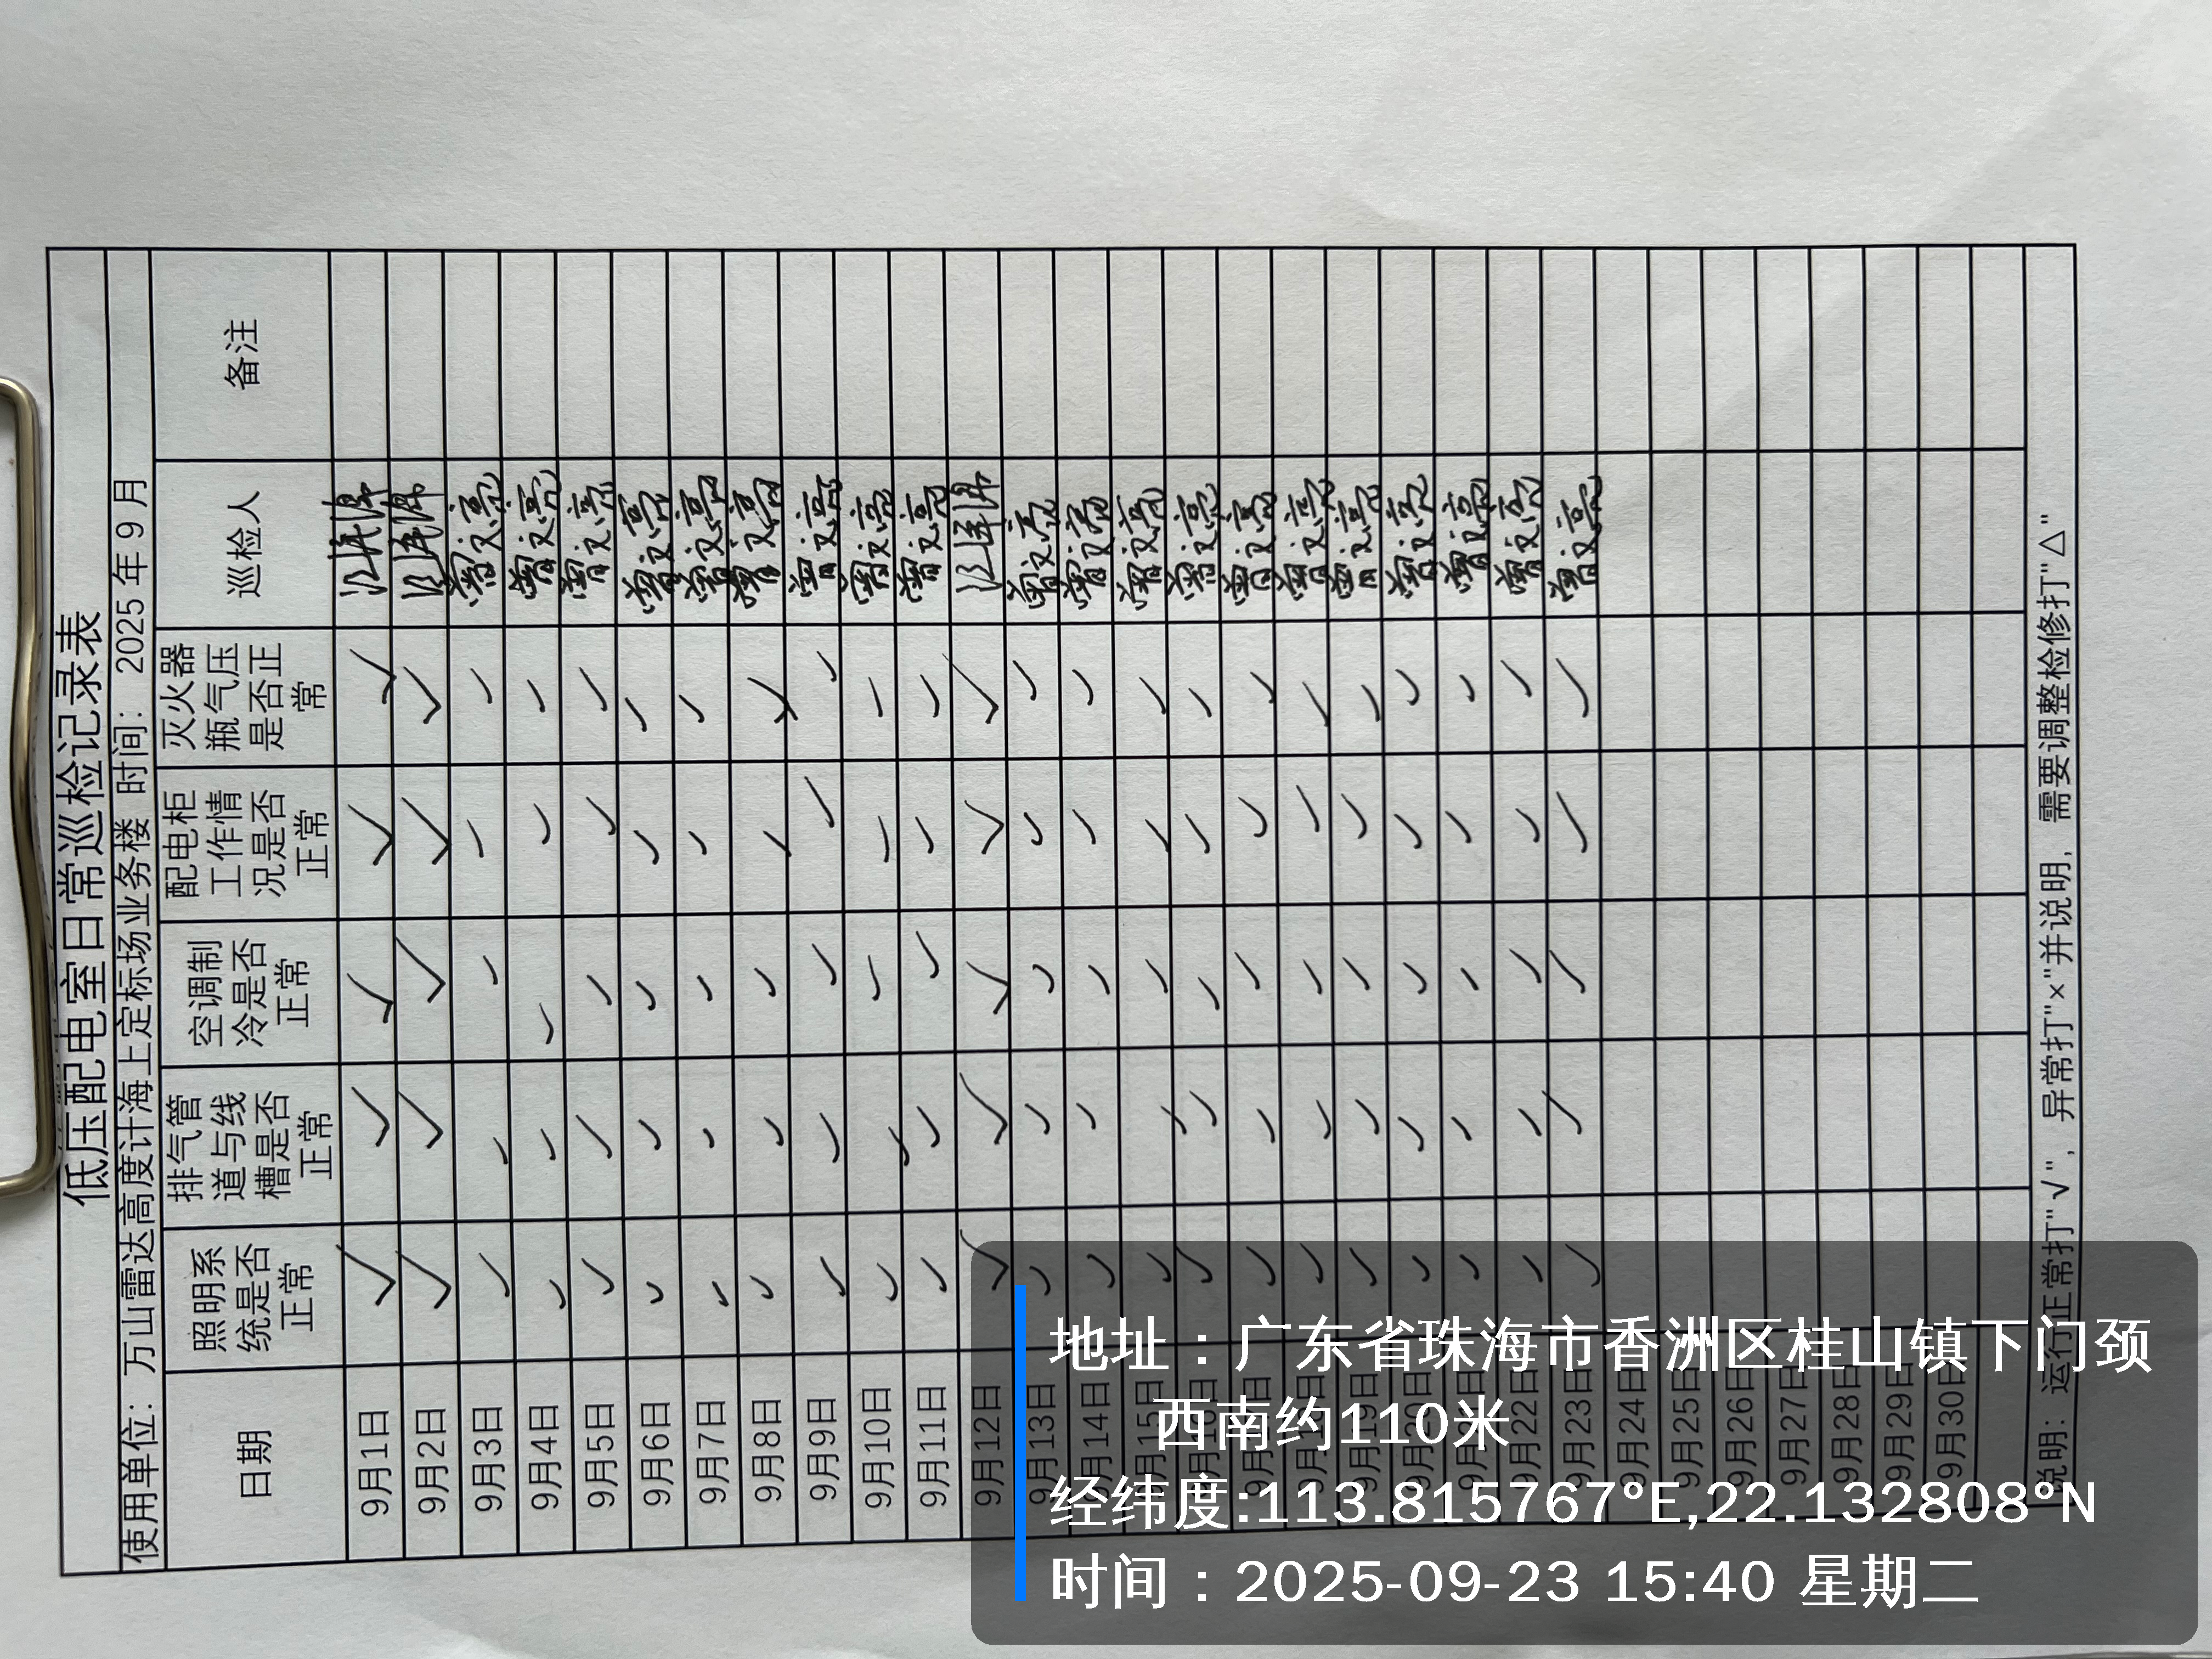 低压配电室日常巡检记录表
使用单位：万山雷达高度计海上定标场业务楼 时间：2025年9月
日期 照明系统是否正常 排气管道与线槽是否正常 空调制冷是否正常 配电柜工作情况是否正常 灭火器瓶气压是否正常 巡检人 备注
9月1日 √ √ √ √ √
9月2日 √ √ √ √ √
9月3日 √ √ √ √ √ 曾文亮
9月4日 √ √ √ √ √ 曾文亮
9月5日 √ √ √ √ √ 曾文亮
9月6日 √ √ √ √ √ 曾文亮
9月7日 √ √ √ √ √ 曾文亮
9月8日 √ √ √ √ √ 曾文亮
9月9日 √ √ √ √ √ 曾文亮
9月10日 √ √ √ √ √ 曾文亮
9月11日 √ √ √ √ √ 曾文亮
9月12日 √ √ √ √ √
9月13日 √ √ √ √ √ 曾文亮
9月14日 √ √ √ √ √ 曾文亮
9月15日 √ √ √ √ √ 曾文亮
9月16日 √ √ √ √ √ 曾文亮
√ √ √ √ √ 曾文亮
√ √ √ √ √ 曾文亮
9月19日 √ √ √ √ √ 曾文亮
9月20日 √ √ √ √ √ 曾文亮
√ √ √ √ √ 曾文亮
9月22日 √ √ √ √ √ 曾文亮
9月23日 √ √ √ √ √ 曾文亮
9月24日
9月25日
9月26日
9月27日
9月28日
9月29日
9月30日
说明：运行正常打"√"，异常打"×"并说明，需要调整检修打"△"
地址：广东省珠海市香洲区桂山镇下门颈
西南约110米
经纬度:113.815767°E,22.132808°N
时间：2025-09-23 15:40 星期二